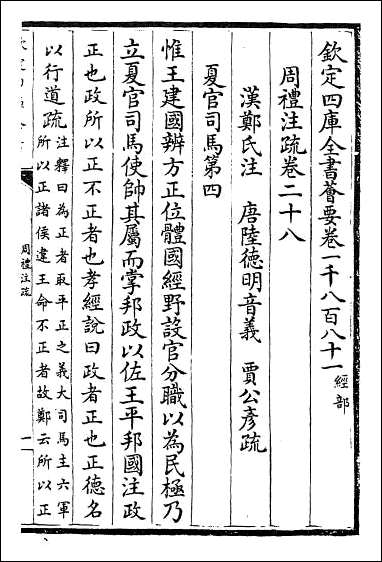 欽定四庫全書薈要卷一千八百八十一 經部
周禮注疏卷二十八
漢鄭氏注 唐陸德明音義 賈公彦疏
夏官司馬第四
惟王建國辨方正位體國經野設官分職以為民極乃
立夏官司馬使帥其屬而掌邦政以佐王平邦國注政
正也政所以正不正者也孝經說曰政者正也正德名
以行道疏注釋曰為正者取平正之義大司馬主六軍
所以正諸侯違王命不正者故鄭云所以正
周禮注疏
一